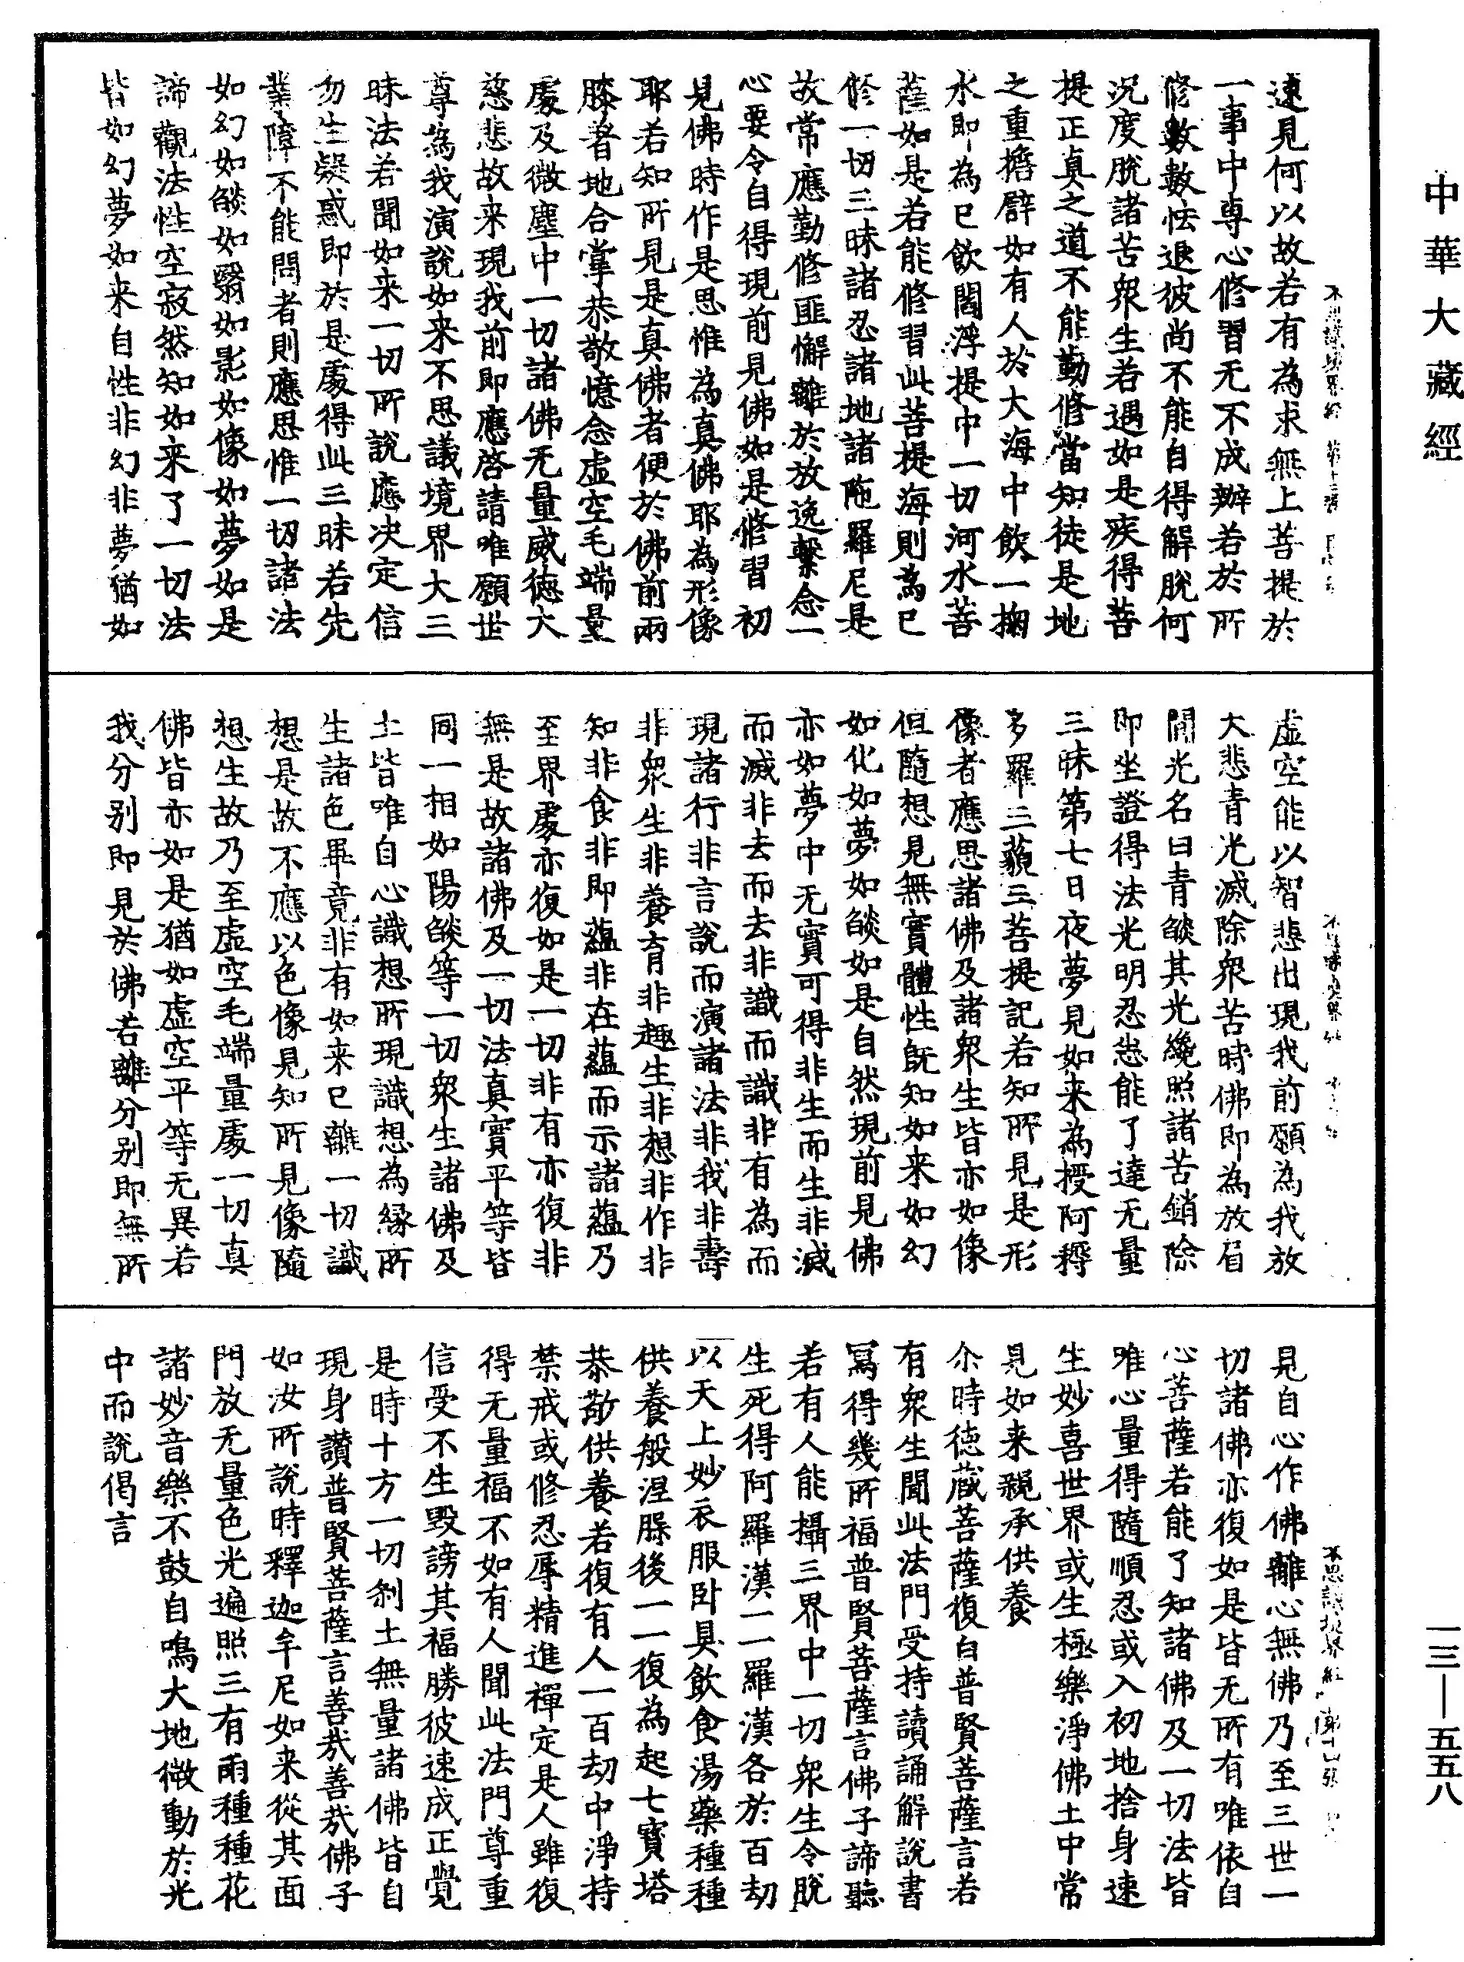 中華大藏經
速見何以故若有為求無上菩提於
一事中專心修習无不成辦若於所
修數數怯退彼尚不能自得解脫何
況度脫諸苦眾生若遇如是疾得菩
提正真之道不能勤修當知徒是地
之重擔辟如有人於大海中飲一掬
水即為已飲閻浮提中一切河水菩
薩如是若能修習此菩提海則為已
修一切三昧諸忍諸地諸陁羅尼是
故常應勤修匪懈離於放逸繫念一
心要令自得現前見佛如是修習初
見佛時作是思惟為真佛耶為形像
耶若知所見是真佛者便於佛前兩
膝著地合掌恭敬憶念虛空毛端量
處及微塵中一切諸佛无量威德大
慈悲故来現我前即應啓請唯願世
尊為我演說如来不思議境界大三
昧法若聞如来一切所說應决定信
勿生疑惑即於是處得此三昧若先
業障不能問者則應思惟一切諸法
如幻如燄如翳如影如像如夢如是
諦觀法性空寂然知如来了一切法
皆如幻夢如来自性非幻非夢猶如
虛空能以智悲出現我前願為我放
大悲青光滅除眾苦時佛即為放眉
間光名曰青燄其光纔照諸苦銷除
即坐證得法光明忍悉能了達无量
三昧第七日夜夢見如来為授阿耨
多羅三藐三菩提記若知所見是形
像者應思諸佛及諸眾生皆亦如像
但隨想見無實體性旣知如来如幻
如化如夢如燄如是自然現前見佛
亦如夢中无實可得非生而生非滅
而滅非去而去非識而識非有為而
現諸行非言說而演諸法非我非壽
非眾生非養育非趣生非想非作非
知非食非即蘊非在蘊而示諸蘊乃
至界處亦復如是一切非有亦復非
無是故諸佛及一切法真實平等皆
同一相如陽燄等一切眾生諸佛及
土皆唯自心識想所現識想為緣所
生諸色畢竟非有如来已離一切識
想是故不應以色像見知所見像隨
想生故乃至虛空毛端量處一切真
佛皆亦如是猶如虛空平等无異若
我分别即見於佛若離分别即無所
見自心作佛離心無佛乃至三世一
切諸佛亦復如是皆无所有唯依自
心菩薩若能了知諸佛及一切法皆
唯心量得隨順忍或入初地捨身速
生妙喜世界或生極樂淨佛土中常
見如来親承供養
尒時德藏菩薩復白普賢菩薩言若
有眾生聞此法門受持讀誦解說書
寫得幾所福普賢菩薩言佛子諦聽
若有人能攝三界中一切眾生令脫
生死得阿羅漢一一羅漢各於百劫
以天上妙衣服卧具飲食湯藥種種
供養般涅槃後一一復為起七寶塔
恭敬供養若復有人一百劫中淨持
禁戒或修忍辱精進禪定是人雖復
得无量福不如有人聞此法門尊重
信受不生毀謗其福勝彼速成正覺
是時十方一切剎土無量諸佛皆自
現身讚普賢菩薩言善㢤善㢤佛子
如汝所說時釋迦牟尼如来從其面
門放无量色光遍照三有雨種種花
諸妙音樂不鼓自鳴大地微動於光
中而說偈言
一三—五五八